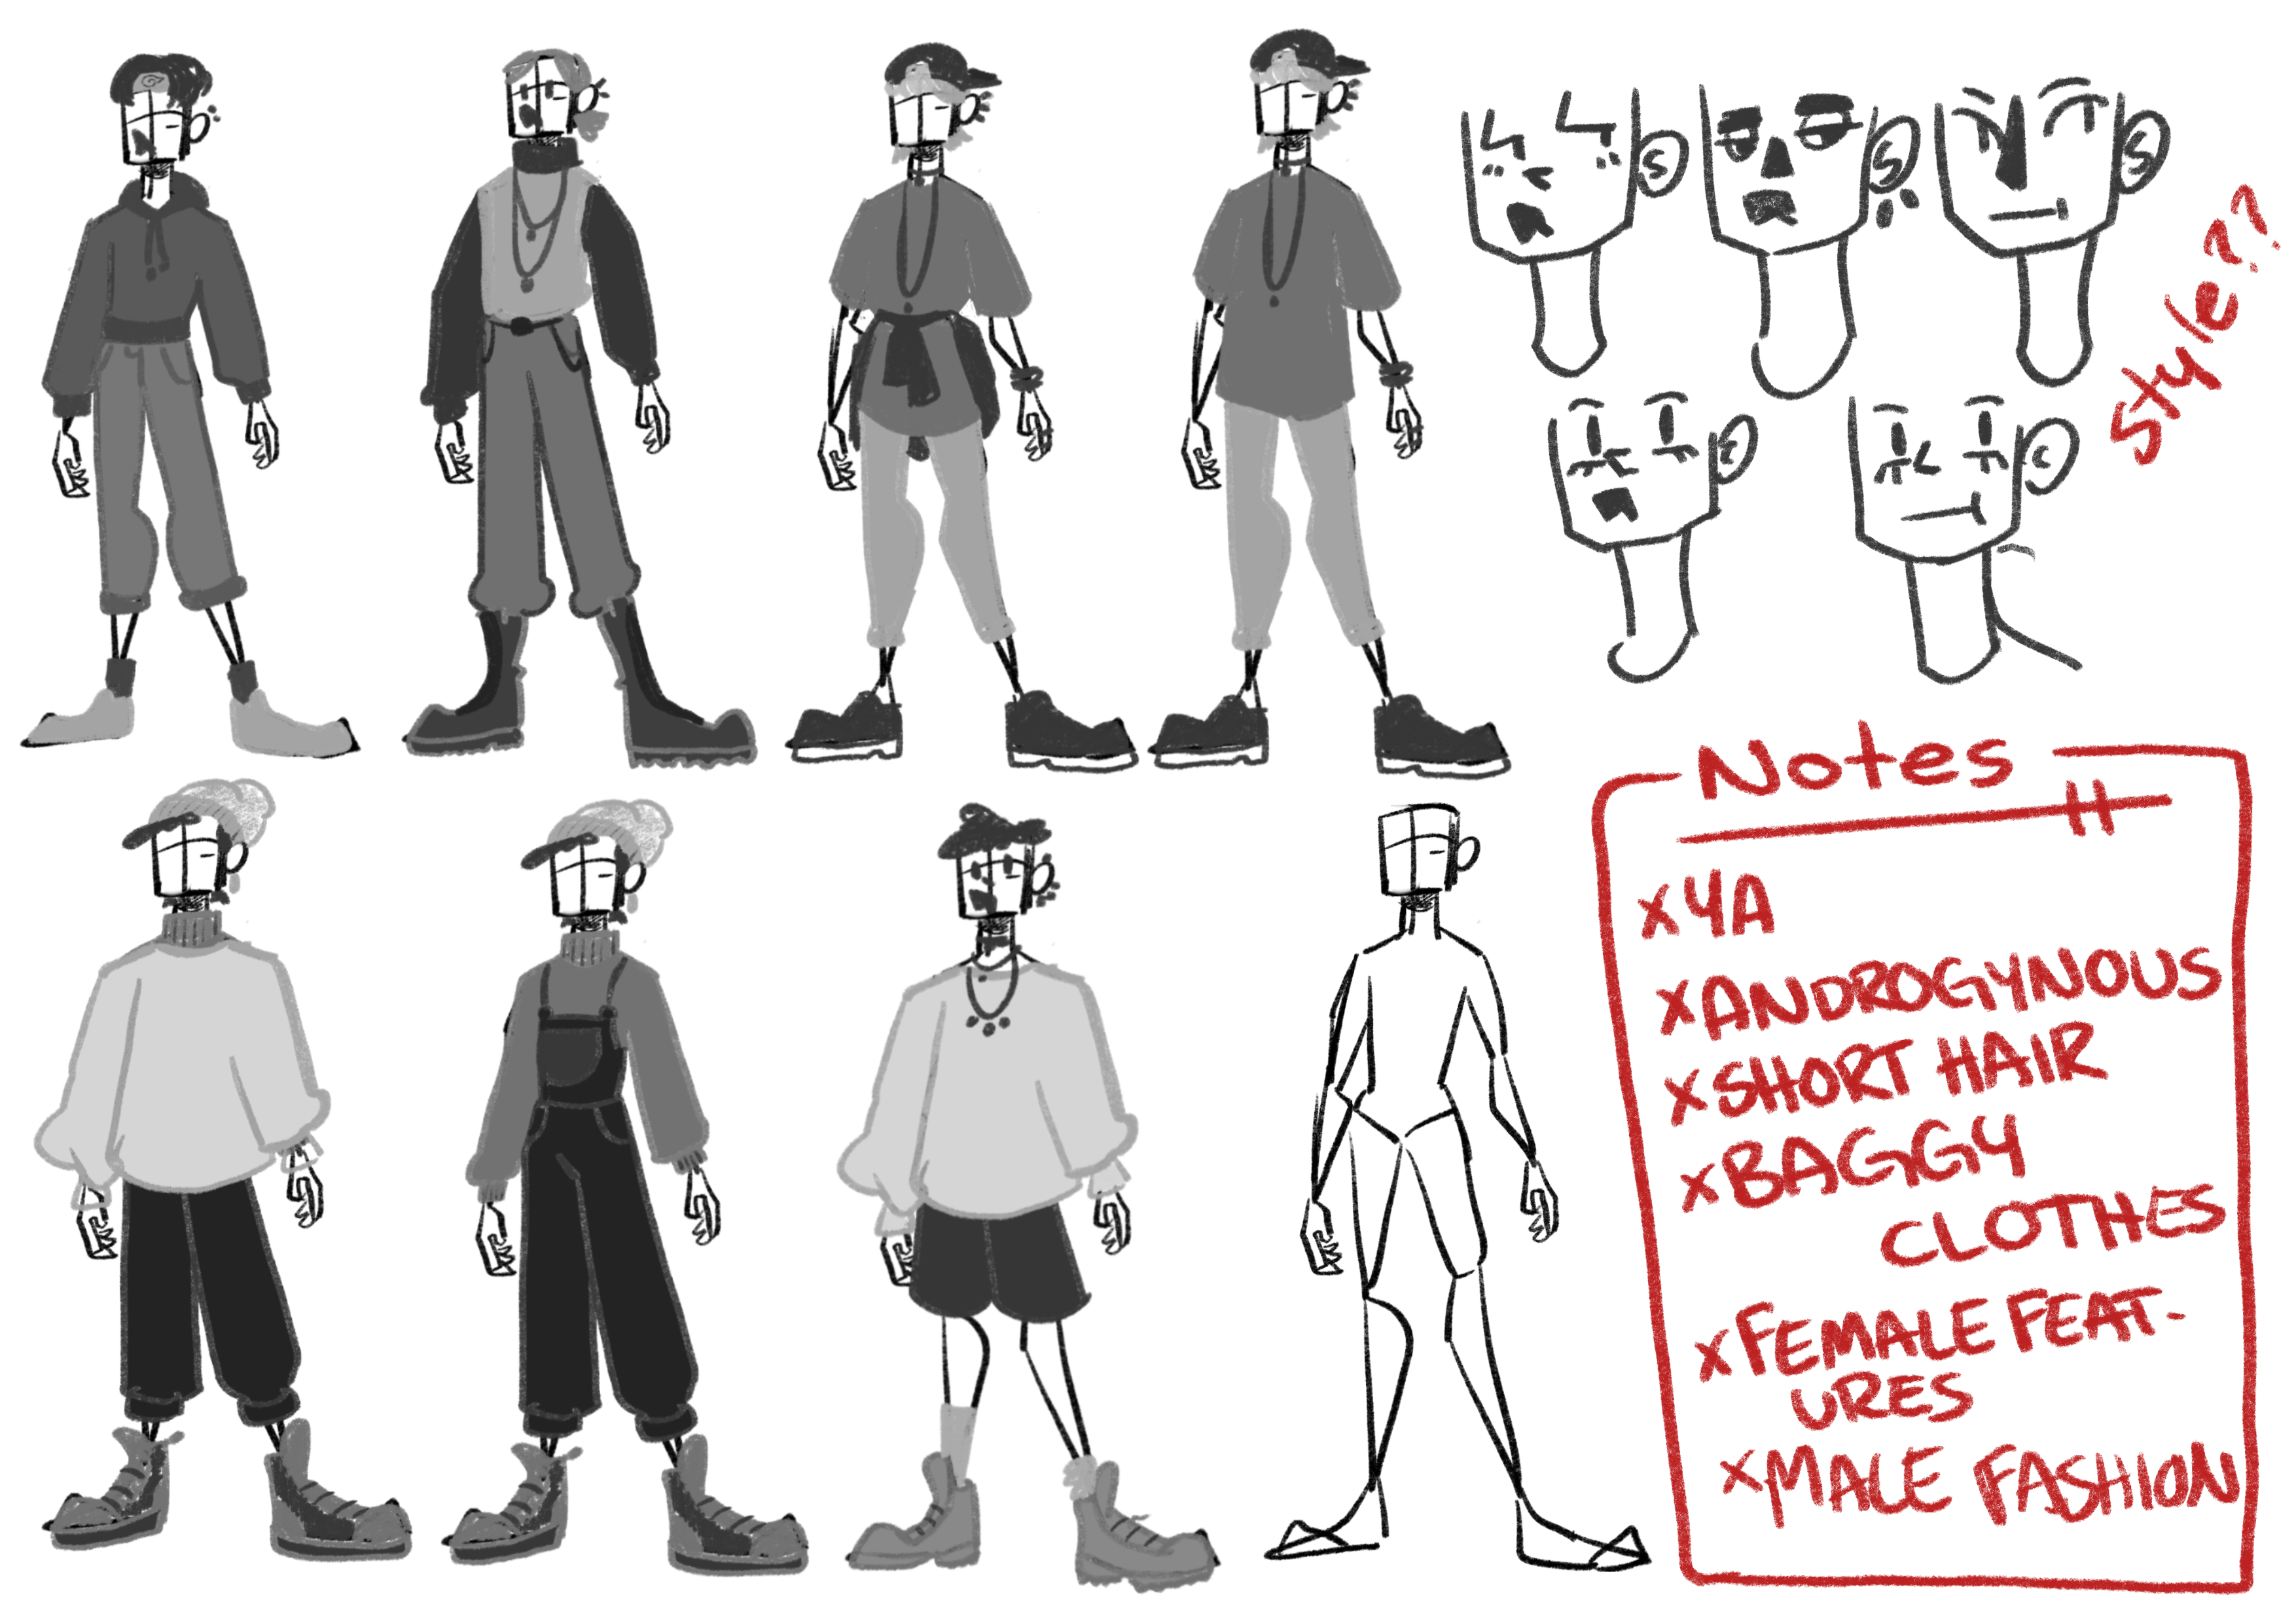 Style??
Notes
x YA
x ANDROGYNOUS
x SHORT HAIR
x BAGGY
CLOTHES
x FEMALE FEAT-
URES
x MALE FASHION